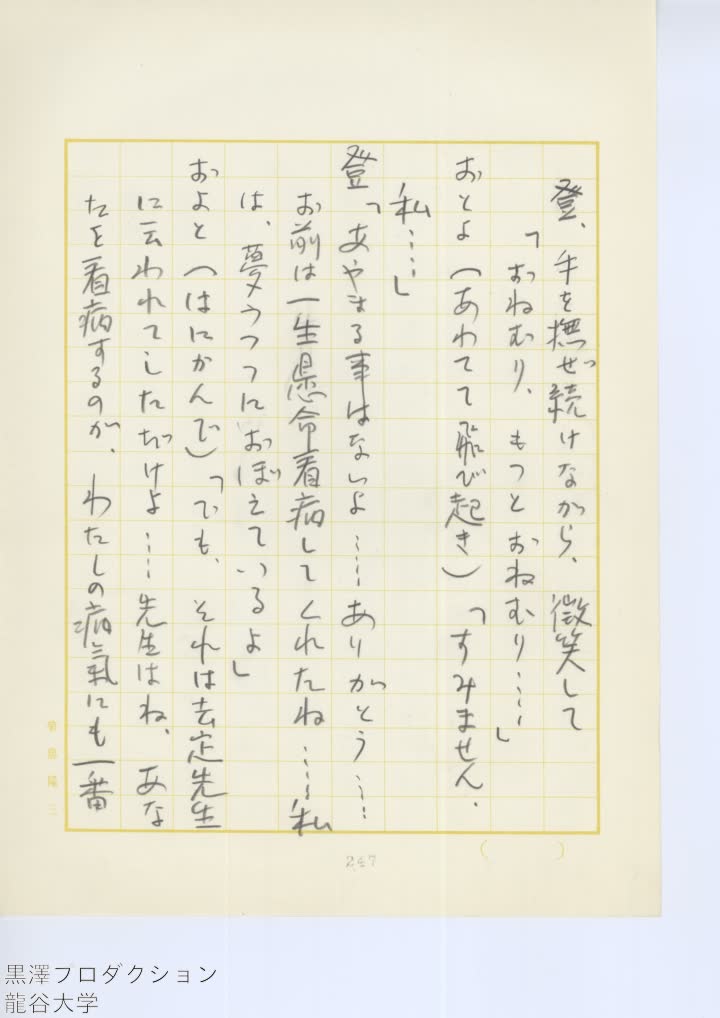 登、手を撫ぜ続けながら、微笑して
「おねむり、もつとおねむり……」
おとよ（あわてて飛び起き）「すみません、
私……」
登「あやまる事はないよ……ありがとう……
お前は一生県命看病してくれたね……私
は、夢うつつにおぼえているよ」
おとよ（はにかんで）「でも、それは去定先生
に云われてしただけよ……先生はね、あな
たを看病するのが、わたしの病氣にも一番
菊島隆三
（　　）
247
黒澤プロダクション
龍谷大学